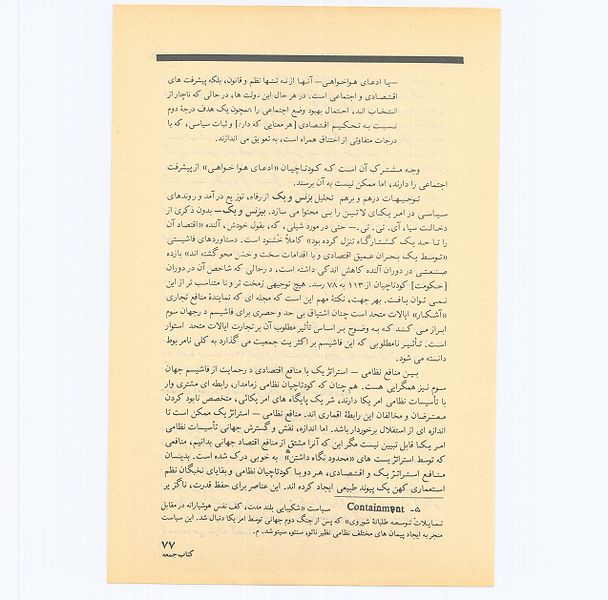 —یا ادعای هواخواهی— آنها از نه تنها نظم و قانون، بلکه پیشرفت های
اقتصادی و اجتماعی است. در هر حال این دولت ها، در حالی که ناچار از
انتخاب اند، احتمال بهبود وضع اجتماعی را همچون یک هدف درجهٔ دوم
نسبت به تحکیم اقتصادی [هر معنایی که دارد] و ثبات سیاسی، که با
درجات متفاوتی از اختناق همراه است، به تعویق می اندازند.
وجه مشترک آن است که کودتاچیان «ادعای هواخواهی» از پیشرفت
اجتماعی را دارند، اما ممکن نیست به آن برسند.
توجیهات درهم و برهم تحلیل بزنس و یک از رفاه، توزیع درآمد و روندهای
سیاسی در امریکای لاتین را بی محتوا می سازد. بیزنس و یک— بدون ذکری از
دخالت سیا، آی. تی. تی.— حتی در مورد شیلی، که، بقول خودش، آلنده «اقتصاد آن
را تا حد یک کشتارگاه تنزل کرده بود» کاملاً خشنود است. دستاوردهای فاشیستی
«توسط یک بحران عمیق اقتصادی و با اقدامات سخت و خشن محو گشته اند» بازده
صنعتی در دوران آلنده کاهش اندکی داشته است، در حالی که شاخص آن در دوران
[حکومت] کودتاچیان از ۱۱۳ به ۷۸ رسد. هیچ توجیهی زمخت تر و نامتناسب تر از این
نمی توان یافت. بهر جهت، نکتهٔ مهم این است که مجله ای که نمایندهٔ منافع تجاری
«آشکار» ایالات متحد است چنان اشتیاق بی حد و حصری برای فاشیسم در جهان سوم
ابراز می کند که به وضوح بر اساس تأثیر مطلوب آن بر تجارت ایالات متحد استوار
است. تأثیر نامطلوبی که این فاشیسم بر اکثریت جمعیت می گذارد به کلی نامربوط
دانسته می شود.
بین منافع نظامی — استراتژیک با منافع اقتصادی در حمایت از فاشیسم جهان
سوم نیز همگرایی هست. هم چنان که کودتاچیان نظامی زمامدار، رابطه ای مشتری وار
با تأسیسات نظامی امریکا دارند، شریک پایگاه های امریکائی، متخصص نابود کردن
معترضان و مخالفان این رابطهٔ اقماری اند. منافع نظامی — استراتژیک ممکن است تا
اندازه ای از استقلال برخوردار باشد. اما اندازه، نقش و گسترش جهانی تأسیسات نظامی
امریکا قابل تبیین نیست مگر این که آنرا مشتق از منافع اقتصاد جهانی بدانیم، منافعی
که توسط استراتژیست های «محدود نگاه داشتن»⁵ به خوبی درک شده است. بدینسان
منافع استراتژیک و اقتصادی، هر دو با کودتاچیان نظامی و بقایای نخبگان نظم
استعماری کهن یک پیوند طبیعی ایجاد کرده اند. این عناصر برای حفظ قدرت، ناگزیر
۵- Containment سیاست «شکیبایی بلند مدت، کف نفس هوشیارانه در مقابل
تمایلات توسعه طلبانهٔ شوروی» که پس از جنگ دوم جهانی توسط امریکا دنبال شد. این سیاست
منجر به ایجاد پیمان های مختلف نظامی نظیر ناتو، سنتو، سیتو شد. م.
۷۷
کتاب جمعه